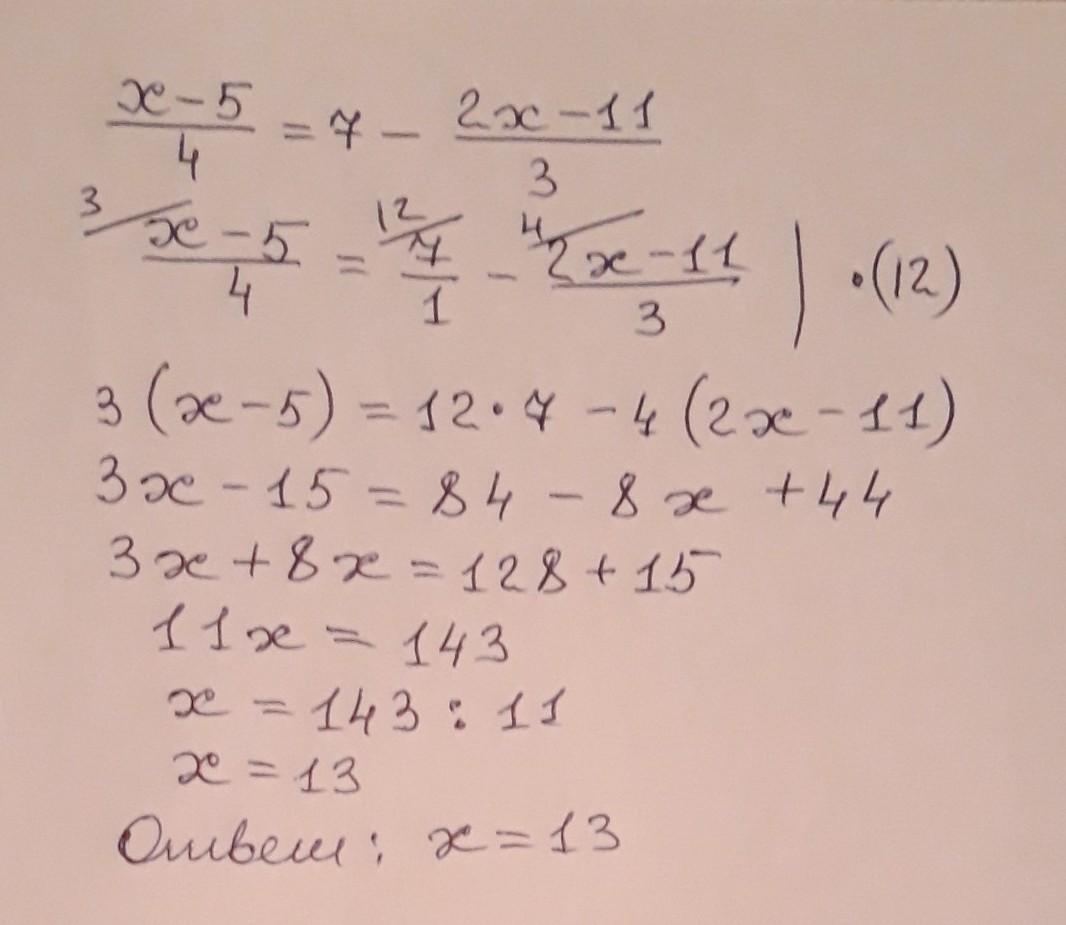 x-5/4 = 7 - 2x-11/3
3/ x-5/4 = 12/ 7/1 - 4/ 2x-11/3 | ·(12)
3(x-5) = 12·7 - 4(2x-11)
3x-15 = 84 - 8x +44
3x+8x = 128+15
11x = 143
x = 143 : 11
x = 13
Ответ: x = 13